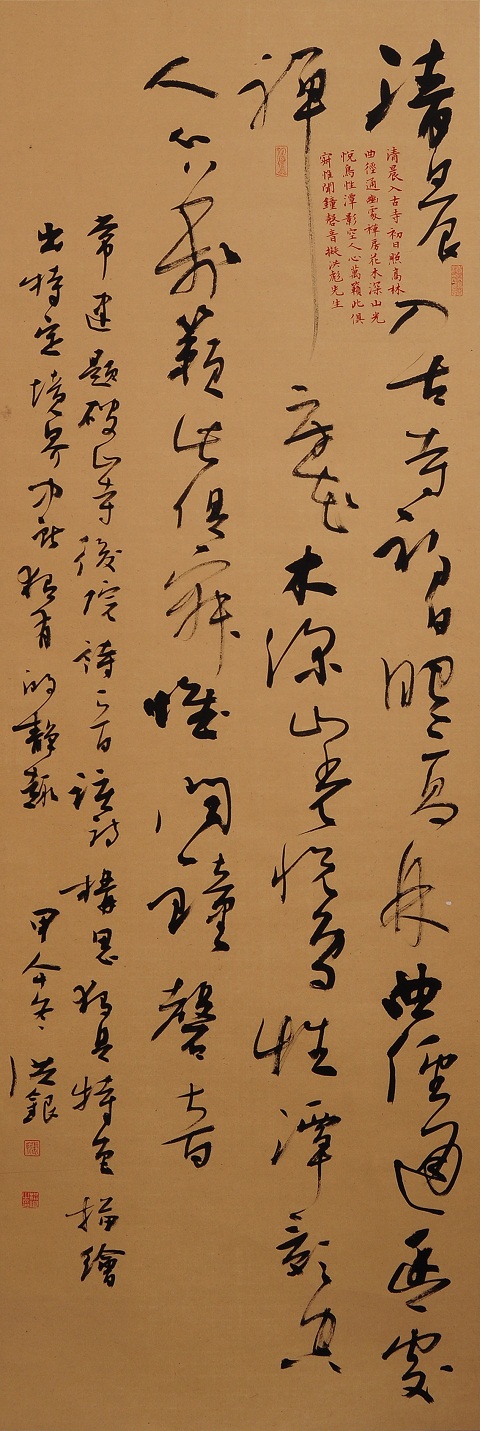 清晨入古寺初日照高林曲徑通幽處
清晨入古寺初日照高林
曲徑通幽處禪房花木深山光
悅鳥性潭影空人心萬籟此俱
寂惟聞鐘磬音擬洪彪先生
禪房花木深山光悅鳥性潭影空
人心萬籟此俱寂惟聞鐘磬音
常建題破山寺後院詩一首該詩構思獨具特色描繪
出特定境界中所獨有的靜趣 甲午冬 洪銀